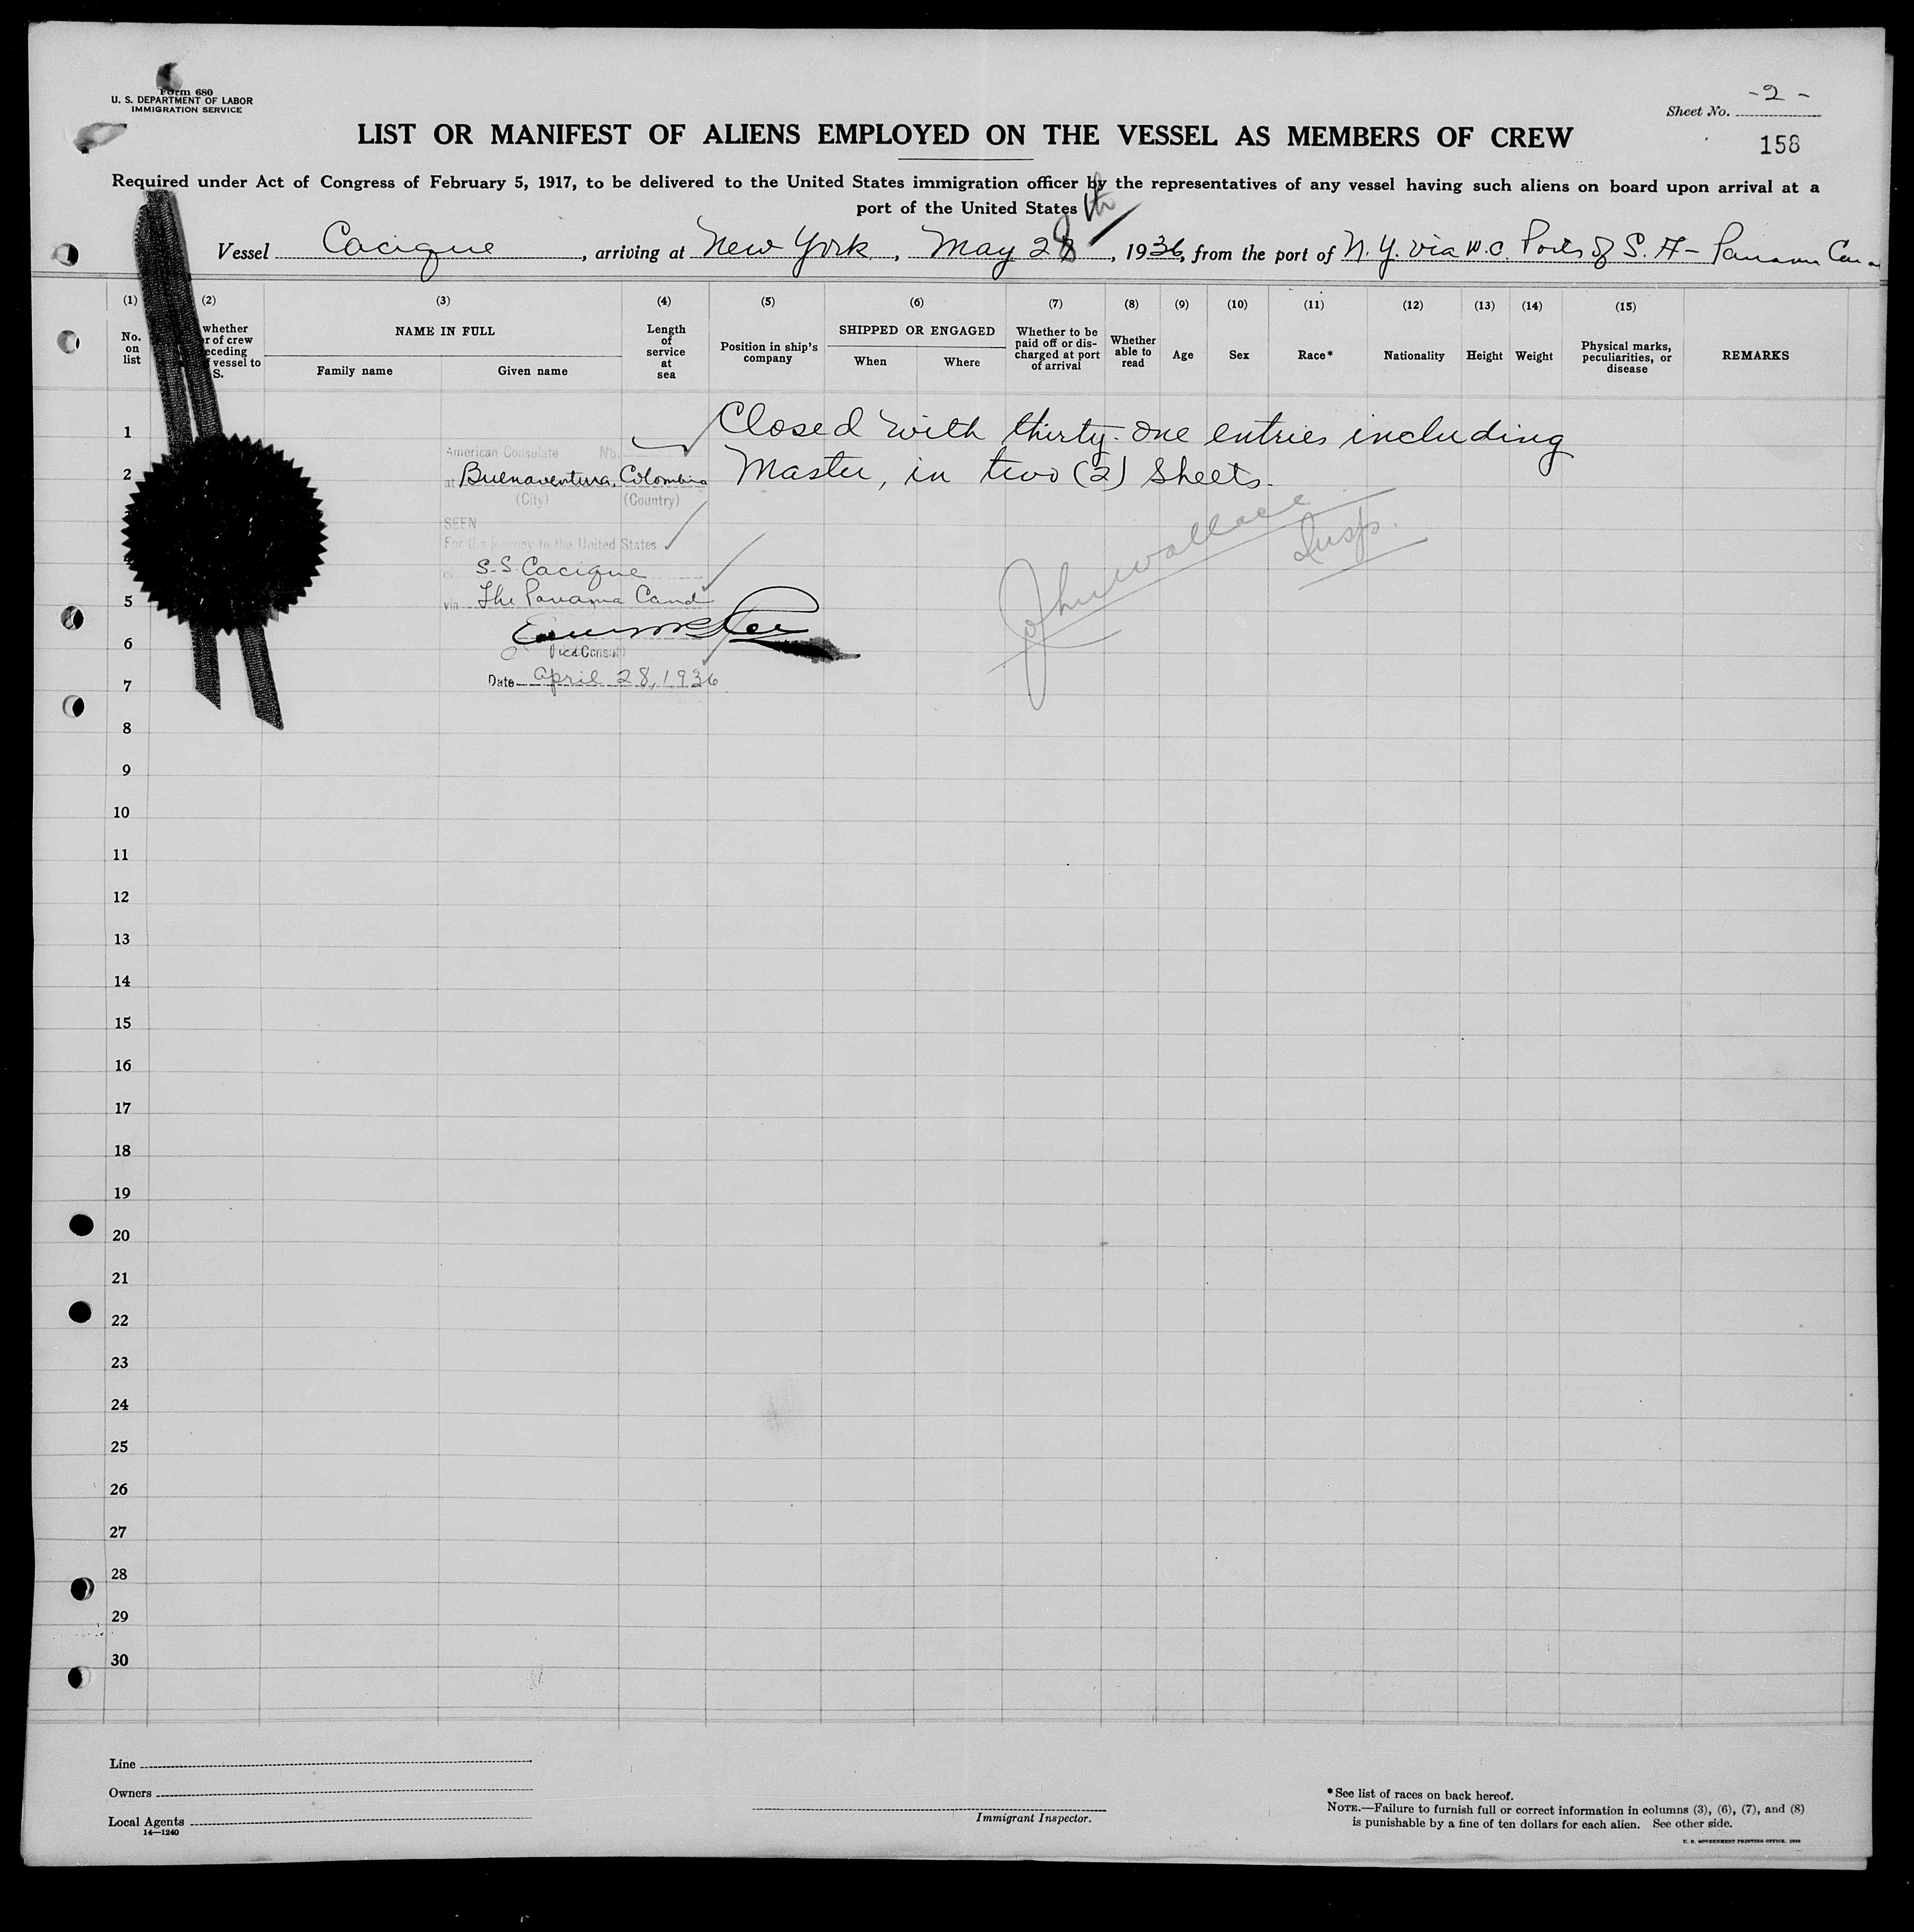 Form 680
U. S. DEPARTMENT OF LABOR
IMMIGRATION SERVICE
Sheet No. -2-
LIST OR MANIFEST OF ALIENS EMPLOYED ON THE VESSEL AS MEMBERS OF CREW
158
Required under Act of Congress of February 5, 1917, to be delivered to the United States immigration officer by the representatives of any vessel having such aliens on board upon arrival at a
port of the United States
Vessel Cacique, arriving at New York, May 28th, 1936, from the port of N. Y. via W.C. Ports of S. A - Panama Canal
(1) (2) (3) (4) (5) (6) (7) (8) (9) (10) (11) (12) (13) (14) (15)
No. on list
whether
of crew
vessel to
S.
NAME IN FULL
Family name
Given name
Length of service at sea
Position in ship's company
SHIPPED OR ENGAGED
When
Where
Whether to be paid off or discharged at port of arrival
Whether able to read
Age
Sex
Race*
Nationality
Height
Weight
Physical marks, peculiarities, or disease
REMARKS
Closed with thirty-one entries including
Master, in two (2) Sheets.
American Consulate No.
at Buenaventura, Colombia
(City) (Country)
SEEN
For the journey to the United States
S.S. Cacique
via The Panama Canal
Vice Consul
Date April 28, 1936
John Wallace
Insp.
1
2
5
6
7
8
9
10
11
12
13
14
15
16
17
18
19
20
21
22
23
24
25
26
27
28
29
30
Line
Owners
Local Agents
14—1240
Immigrant Inspector.
*See list of races on back hereof.
NOTE.—Failure to furnish full or correct information in columns (3), (6), (7), and (8)
is punishable by a fine of ten dollars for each alien. See other side.
U. S. GOVERNMENT PRINTING OFFICE